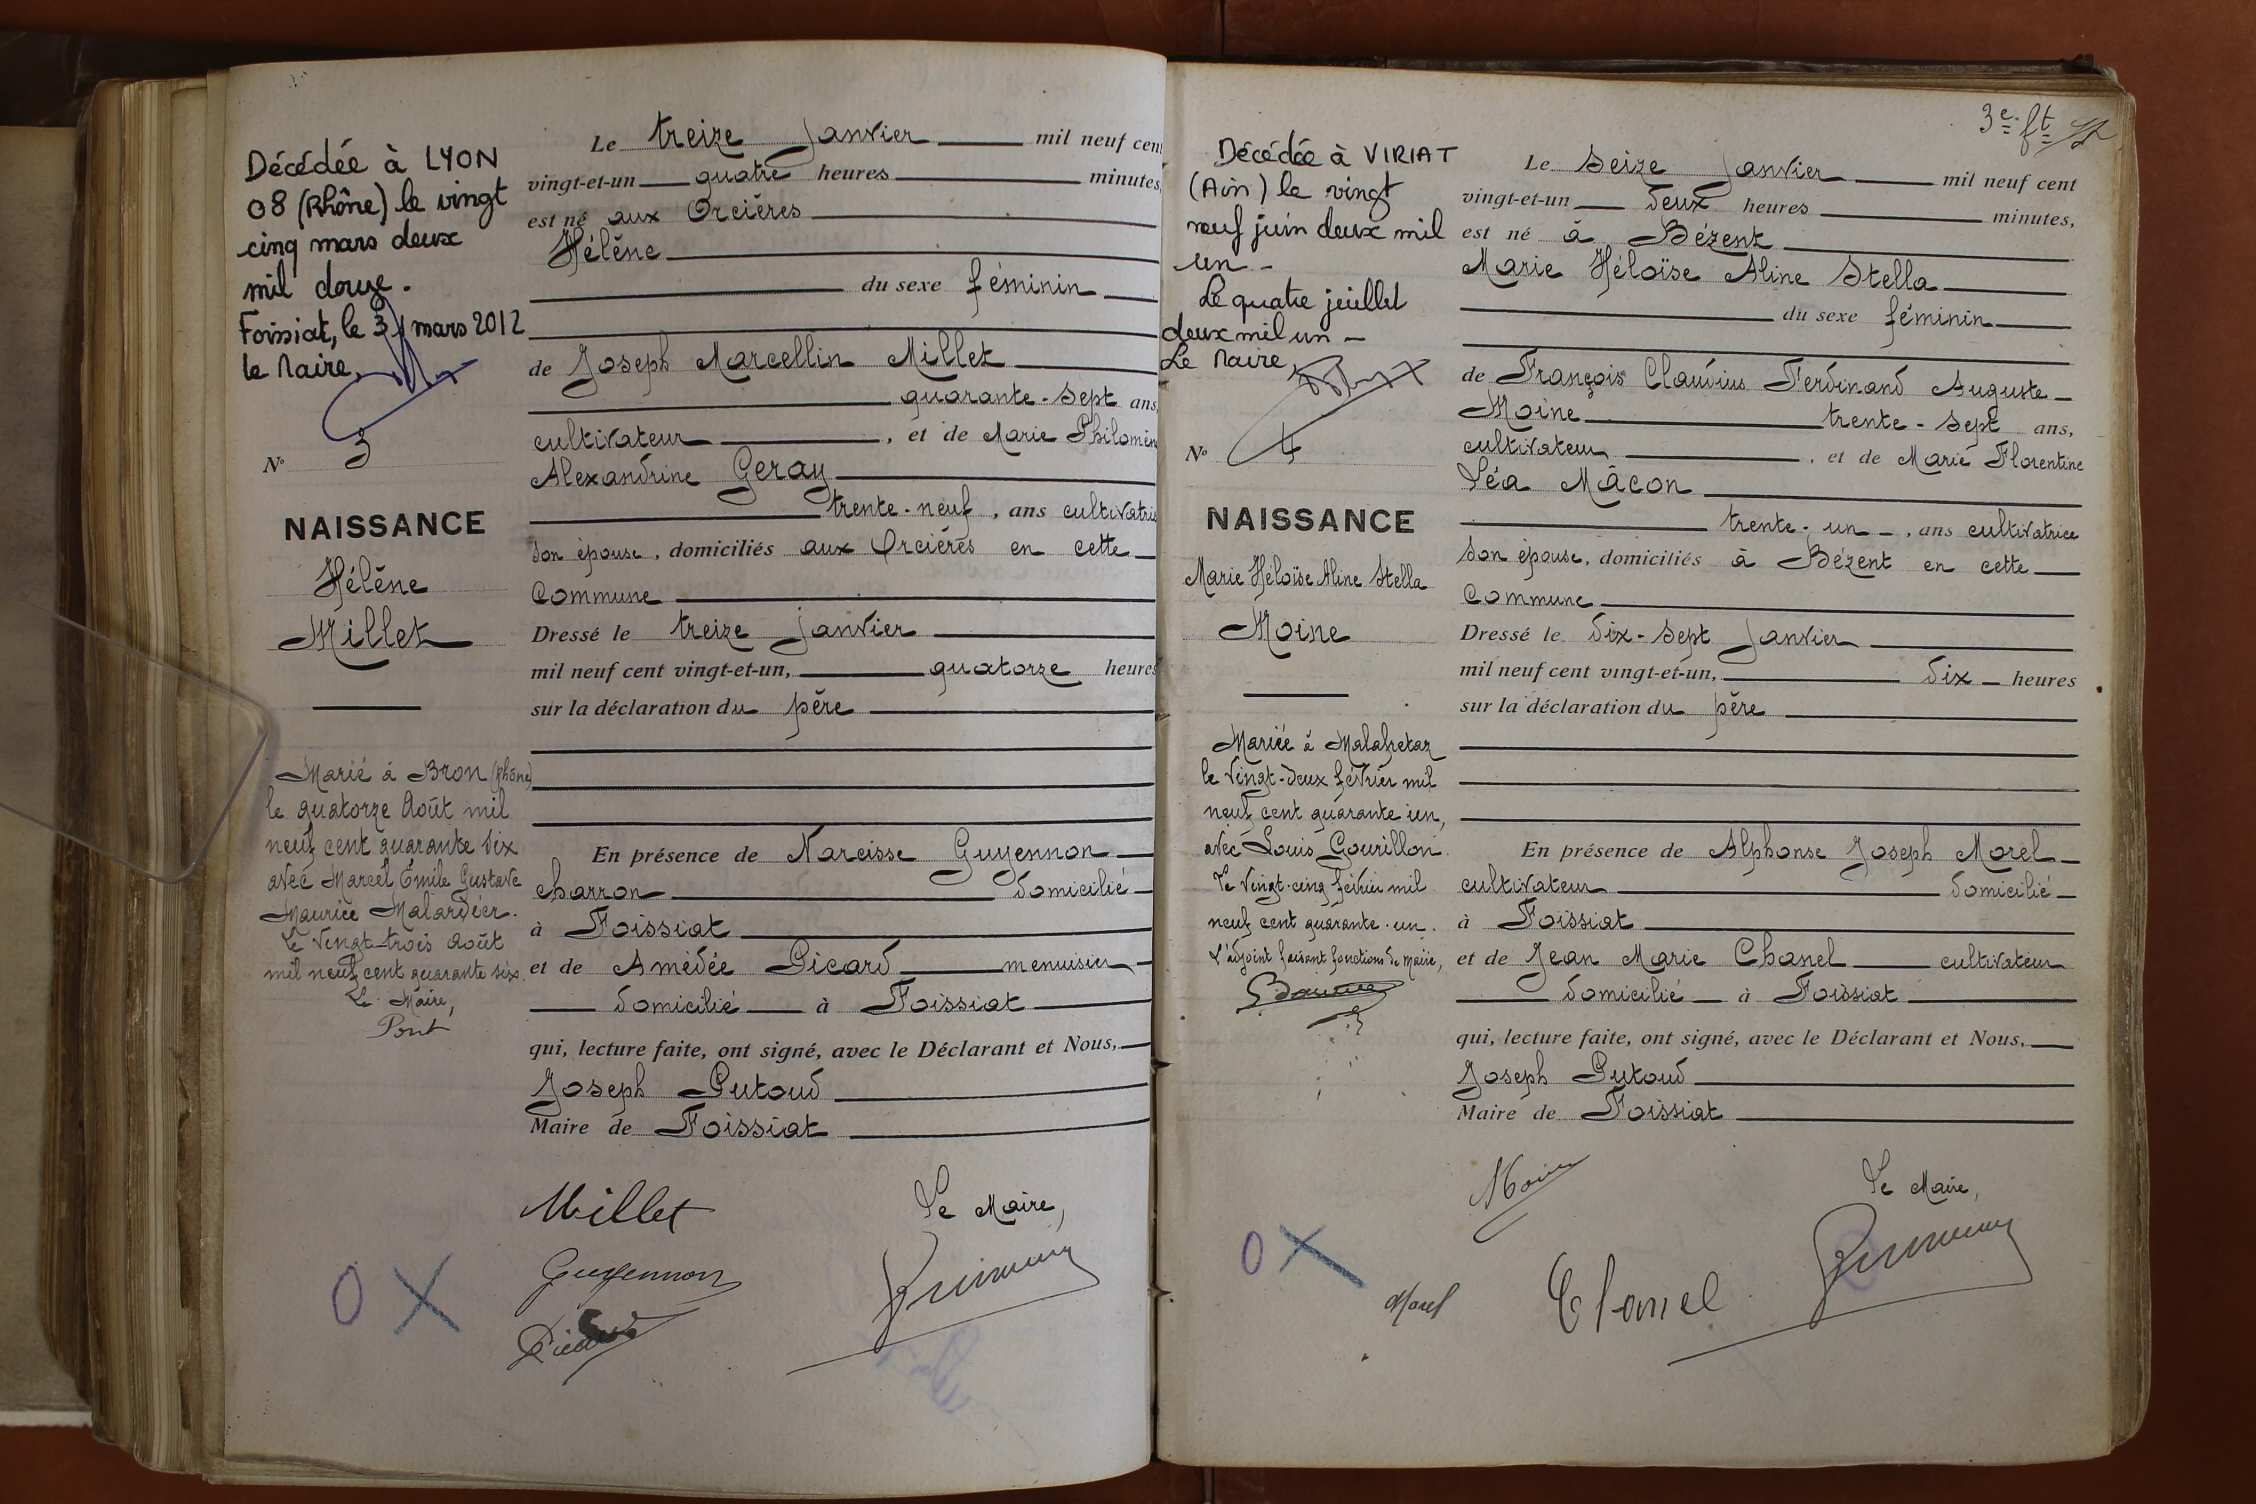 Décédée à LYON
08 (Rhône) le vingt
cinq mars deux
mil douze.
Foissiat, le 31 mars 2012
le Maire,
N° 3
NAISSANCE
Hélène
Millet
Marié à Bron (Rhône)
le quatorze Août mil
neuf cent quarante six
avec Marcel Émile Gustave
Maurice
Le vingt-trois août
mil neuf cent quarante six.
Le Maire,
Pont
Le treize Janvier mil neuf cent
vingt-et-un quatre heures minutes,
est né aux Orcières
Hélène
du sexe féminin
de Joseph Marcellin Millet
quarante-sept ans,
cultivateur, et de Marie Philomèn
Alexandrine Geray
trente-neuf, ans cultivatric
son épouse, domiciliés aux Orcières en cette
Commune
Dressé le treize Janvier
mil neuf cent vingt-et-un, quatorze heures
sur la déclaration du père
En présence de Narcisse Guyennon
charron domicilié
à Foissiat
et de Amédée Picard menuisier
domicilié à Foissiat
qui, lecture faite, ont signé, avec le Déclarant et Nous,
Joseph Putoud
Maire de Foissiat
Millet
Le Maire,
Guyennon
Picard
0 X
3e ft
Décédée à VIRIAT
(Ain) le vingt
neuf juin deux mil
un -
Le quatre juillet
deux mil un -
Le Maire
N° 4
NAISSANCE
Marie Héloïse Aline Stella
Moine
Mariée à Malafretaz
le vingt-deux février mil
neuf cent quarante un,
avec Louis Gourillon.
Le vingt-cinq février mil
neuf cent quarante-un.
L'adjoint faisant fonctions de maire,
Le Seize Janvier mil neuf cent
vingt-et-un deux heures minutes,
est né à Bézent
Marie Héloïse Aline Stella
du sexe féminin
de François Claudius Ferdinand Auguste
Moine trente-sept ans,
cultivateur, et de Marie Florentine
Léa Mâcon
trente-un, ans cultivatrice
son épouse, domiciliés à Bézent en cette
Commune
Dressé le dix-sept Janvier
mil neuf cent vingt-et-un, dix heures
sur la déclaration du père
En présence de Alphonse Joseph Morel
cultivateur domicilié
à Foissiat
et de Jean Marie Chanel cultivateur
domicilié à Foissiat
qui, lecture faite, ont signé, avec le Déclarant et Nous,
Joseph Putoud
Maire de Foissiat
Moine
Le Maire,
0 X
Morel
Chanel